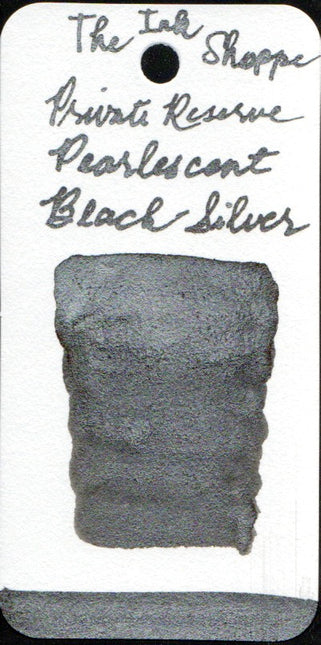 The Ink Shoppe
Private Reserve
Pearlescent
Black Silver